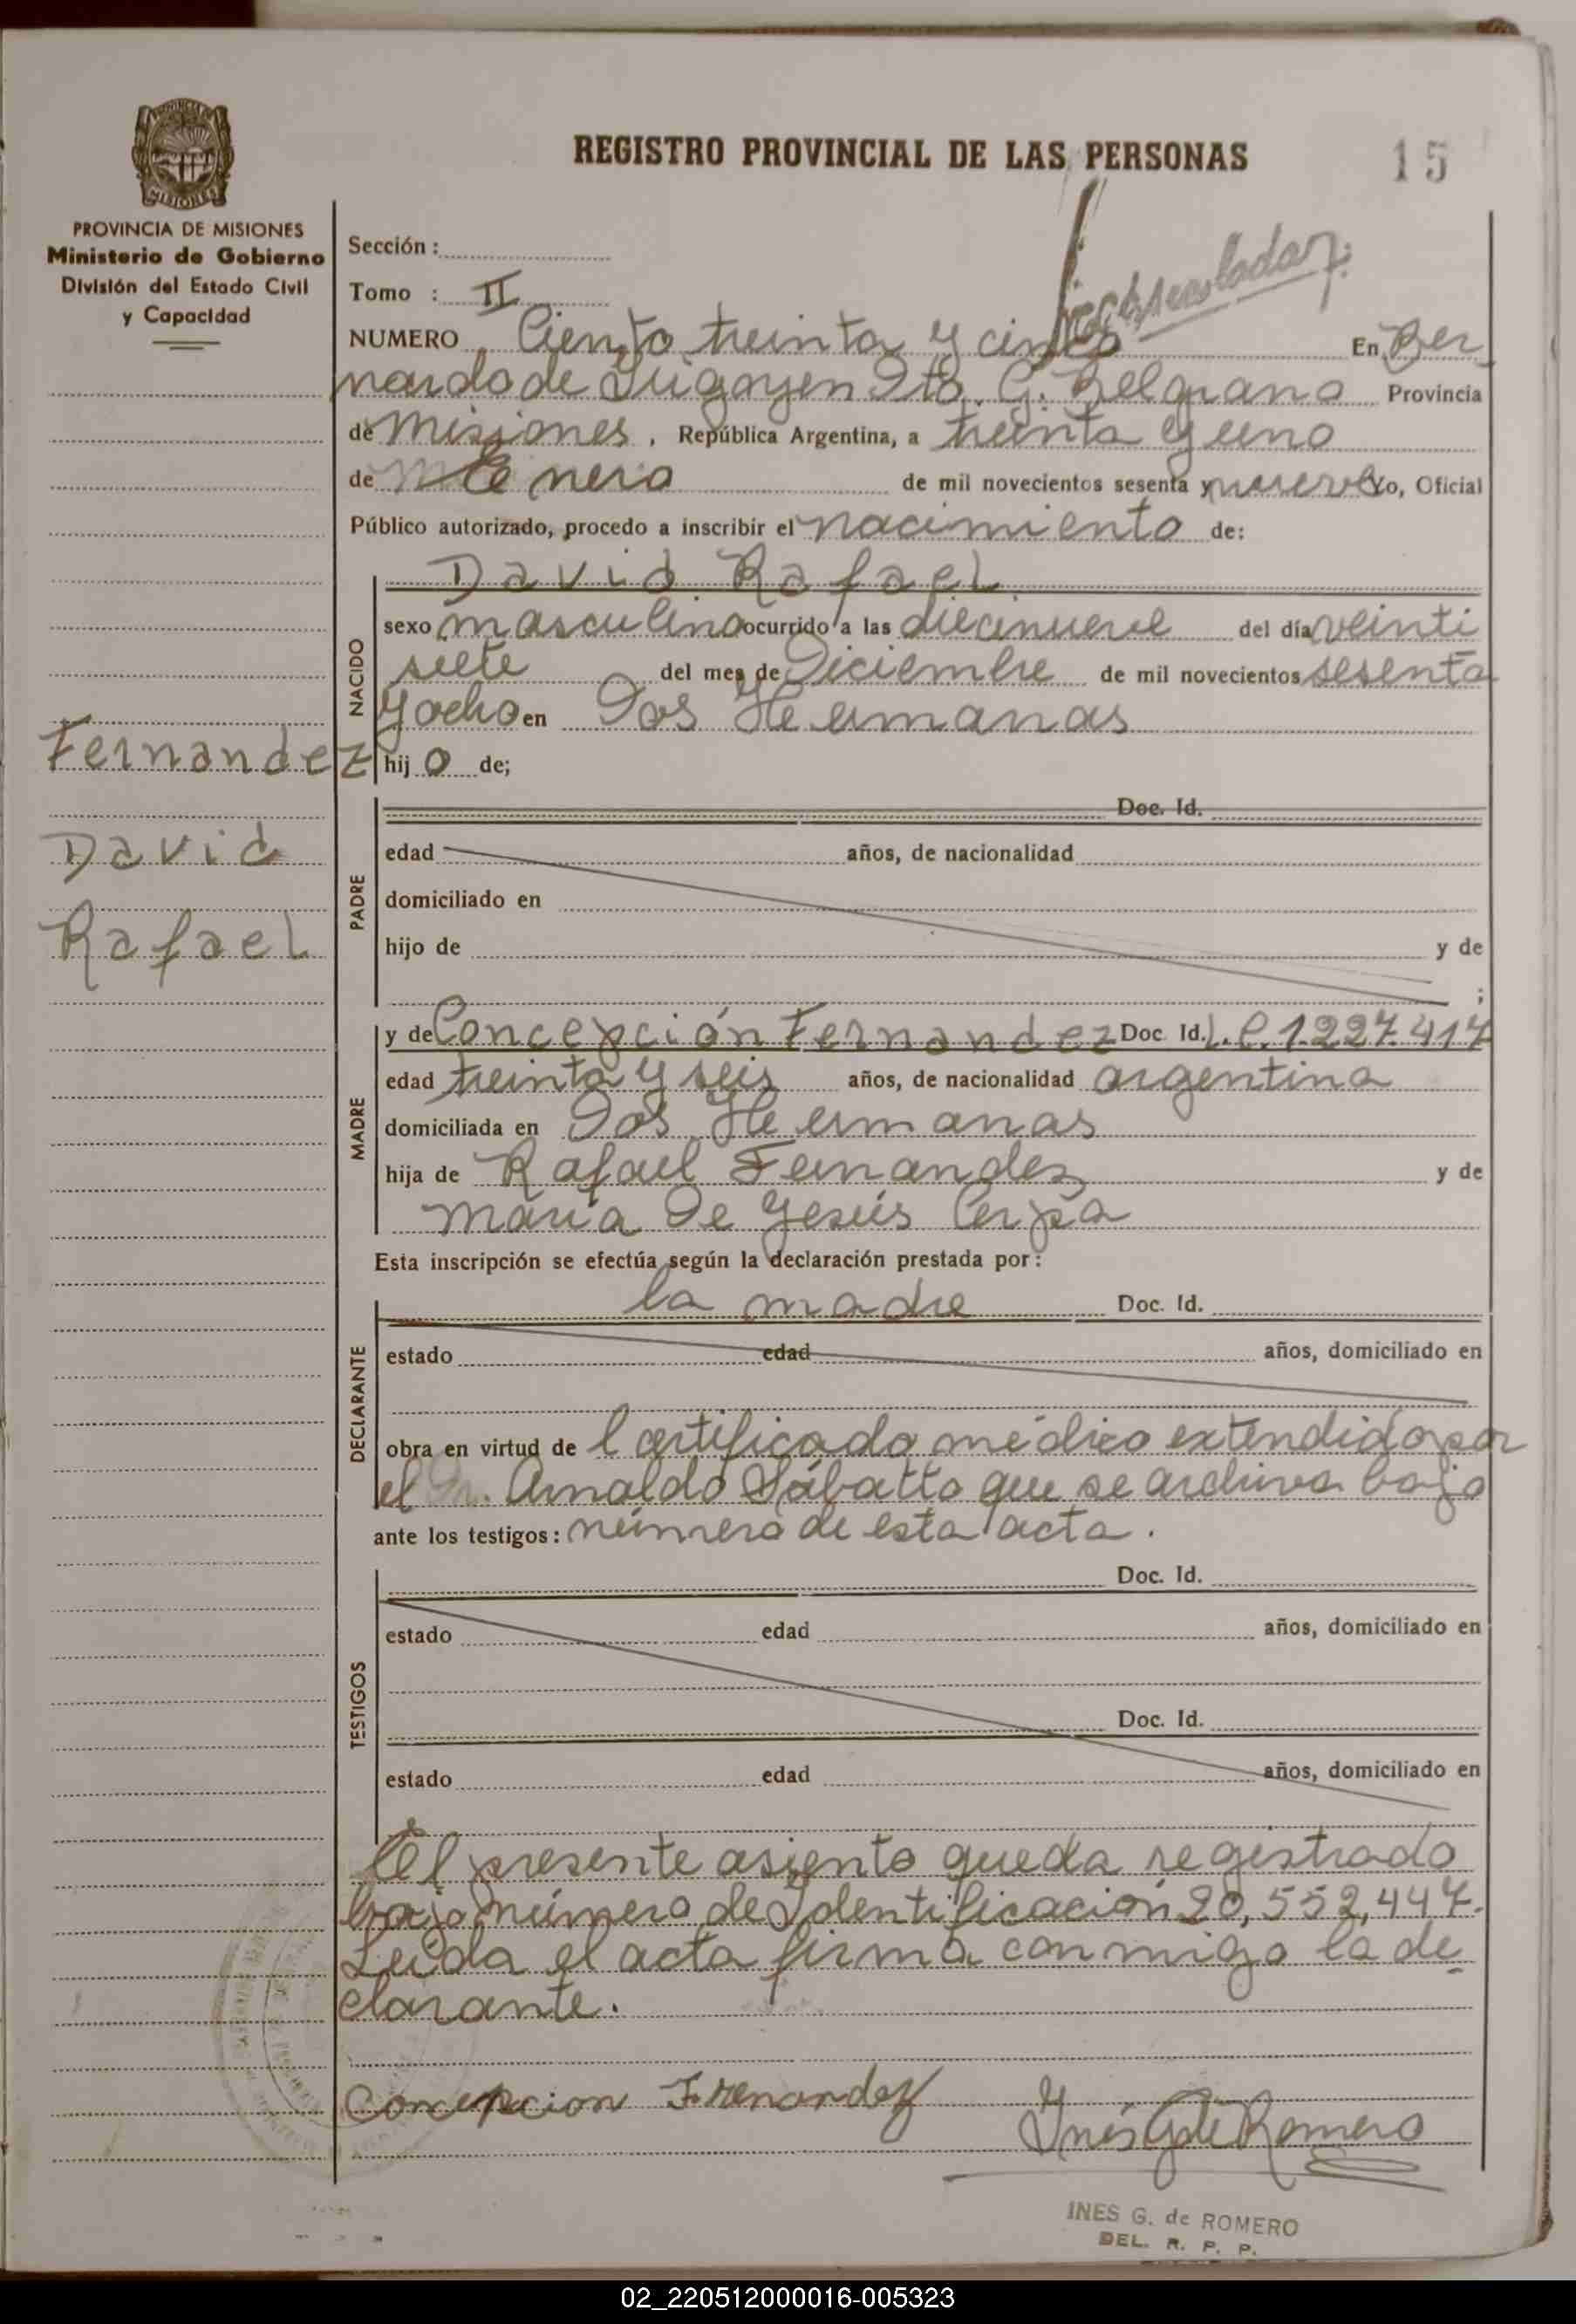 REGISTRO PROVINCIAL DE LAS PERSONAS
15
PROVINCIA DE MISIONES
Ministerio de Gobierno
División del Estado Civil
y Capacidad
Sección :
Tomo : II
NUMERO Ciento treinta y cinco En Ber
nardo de Irigoyen Dto. G. Belgrano Provincia
de Misiones, República Argentina, a treinta y uno
de Enero de mil novecientos sesenta y nueve Yo, Oficial
Público autorizado, procedo a inscribir el nacimiento de:
David Rafael
NACIDO
sexo masculino ocurrido a las diecinueve del día veinti
siete del mes de Diciembre de mil novecientos sesenta
y ocho en Dos Hermanas
Fernandez
hijo de;
David
Rafael
PADRE
Doc. Id.
edad años, de nacionalidad
domiciliado en
hijo de y de
;
MADRE
y de Concepción Fernandez Doc. Id. L.C. 1.227.417
edad treinta y seis años, de nacionalidad argentina
domiciliada en Dos Hermanas
hija de Rafael Fernandez y de
María De Jesús Cerpa
Esta inscripción se efectúa según la declaración prestada por:
DECLARANTE
la madre Doc. Id.
estado edad años, domiciliado en
obra en virtud de l certificado médico extendido por
el Dr. Arnaldo Sábatto que se archiva bajo
ante los testigos: número de esta acta.
TESTIGOS
Doc. Id.
estado edad años, domiciliado en
Doc. Id.
estado edad años, domiciliado en
El presente asiento queda registrado
bajo número de Identificación 20,552,447.
Leída el acta firma conmigo la de
clarante.
Concepcion Frenandez
Inés G de Romero
INES G. de ROMERO
DEL. R. P. P.
02_220512000016-005323